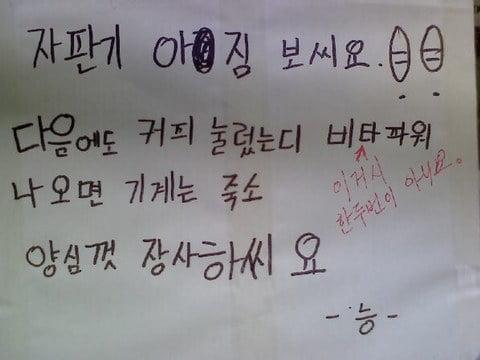 자판기 아짐 보씨요.
다음에도 커피 눌렀는디 비타파워
나오면 기계는 죽소
이거시
한두번이 아니요.
양심껏 장사하씨요
- 능 -